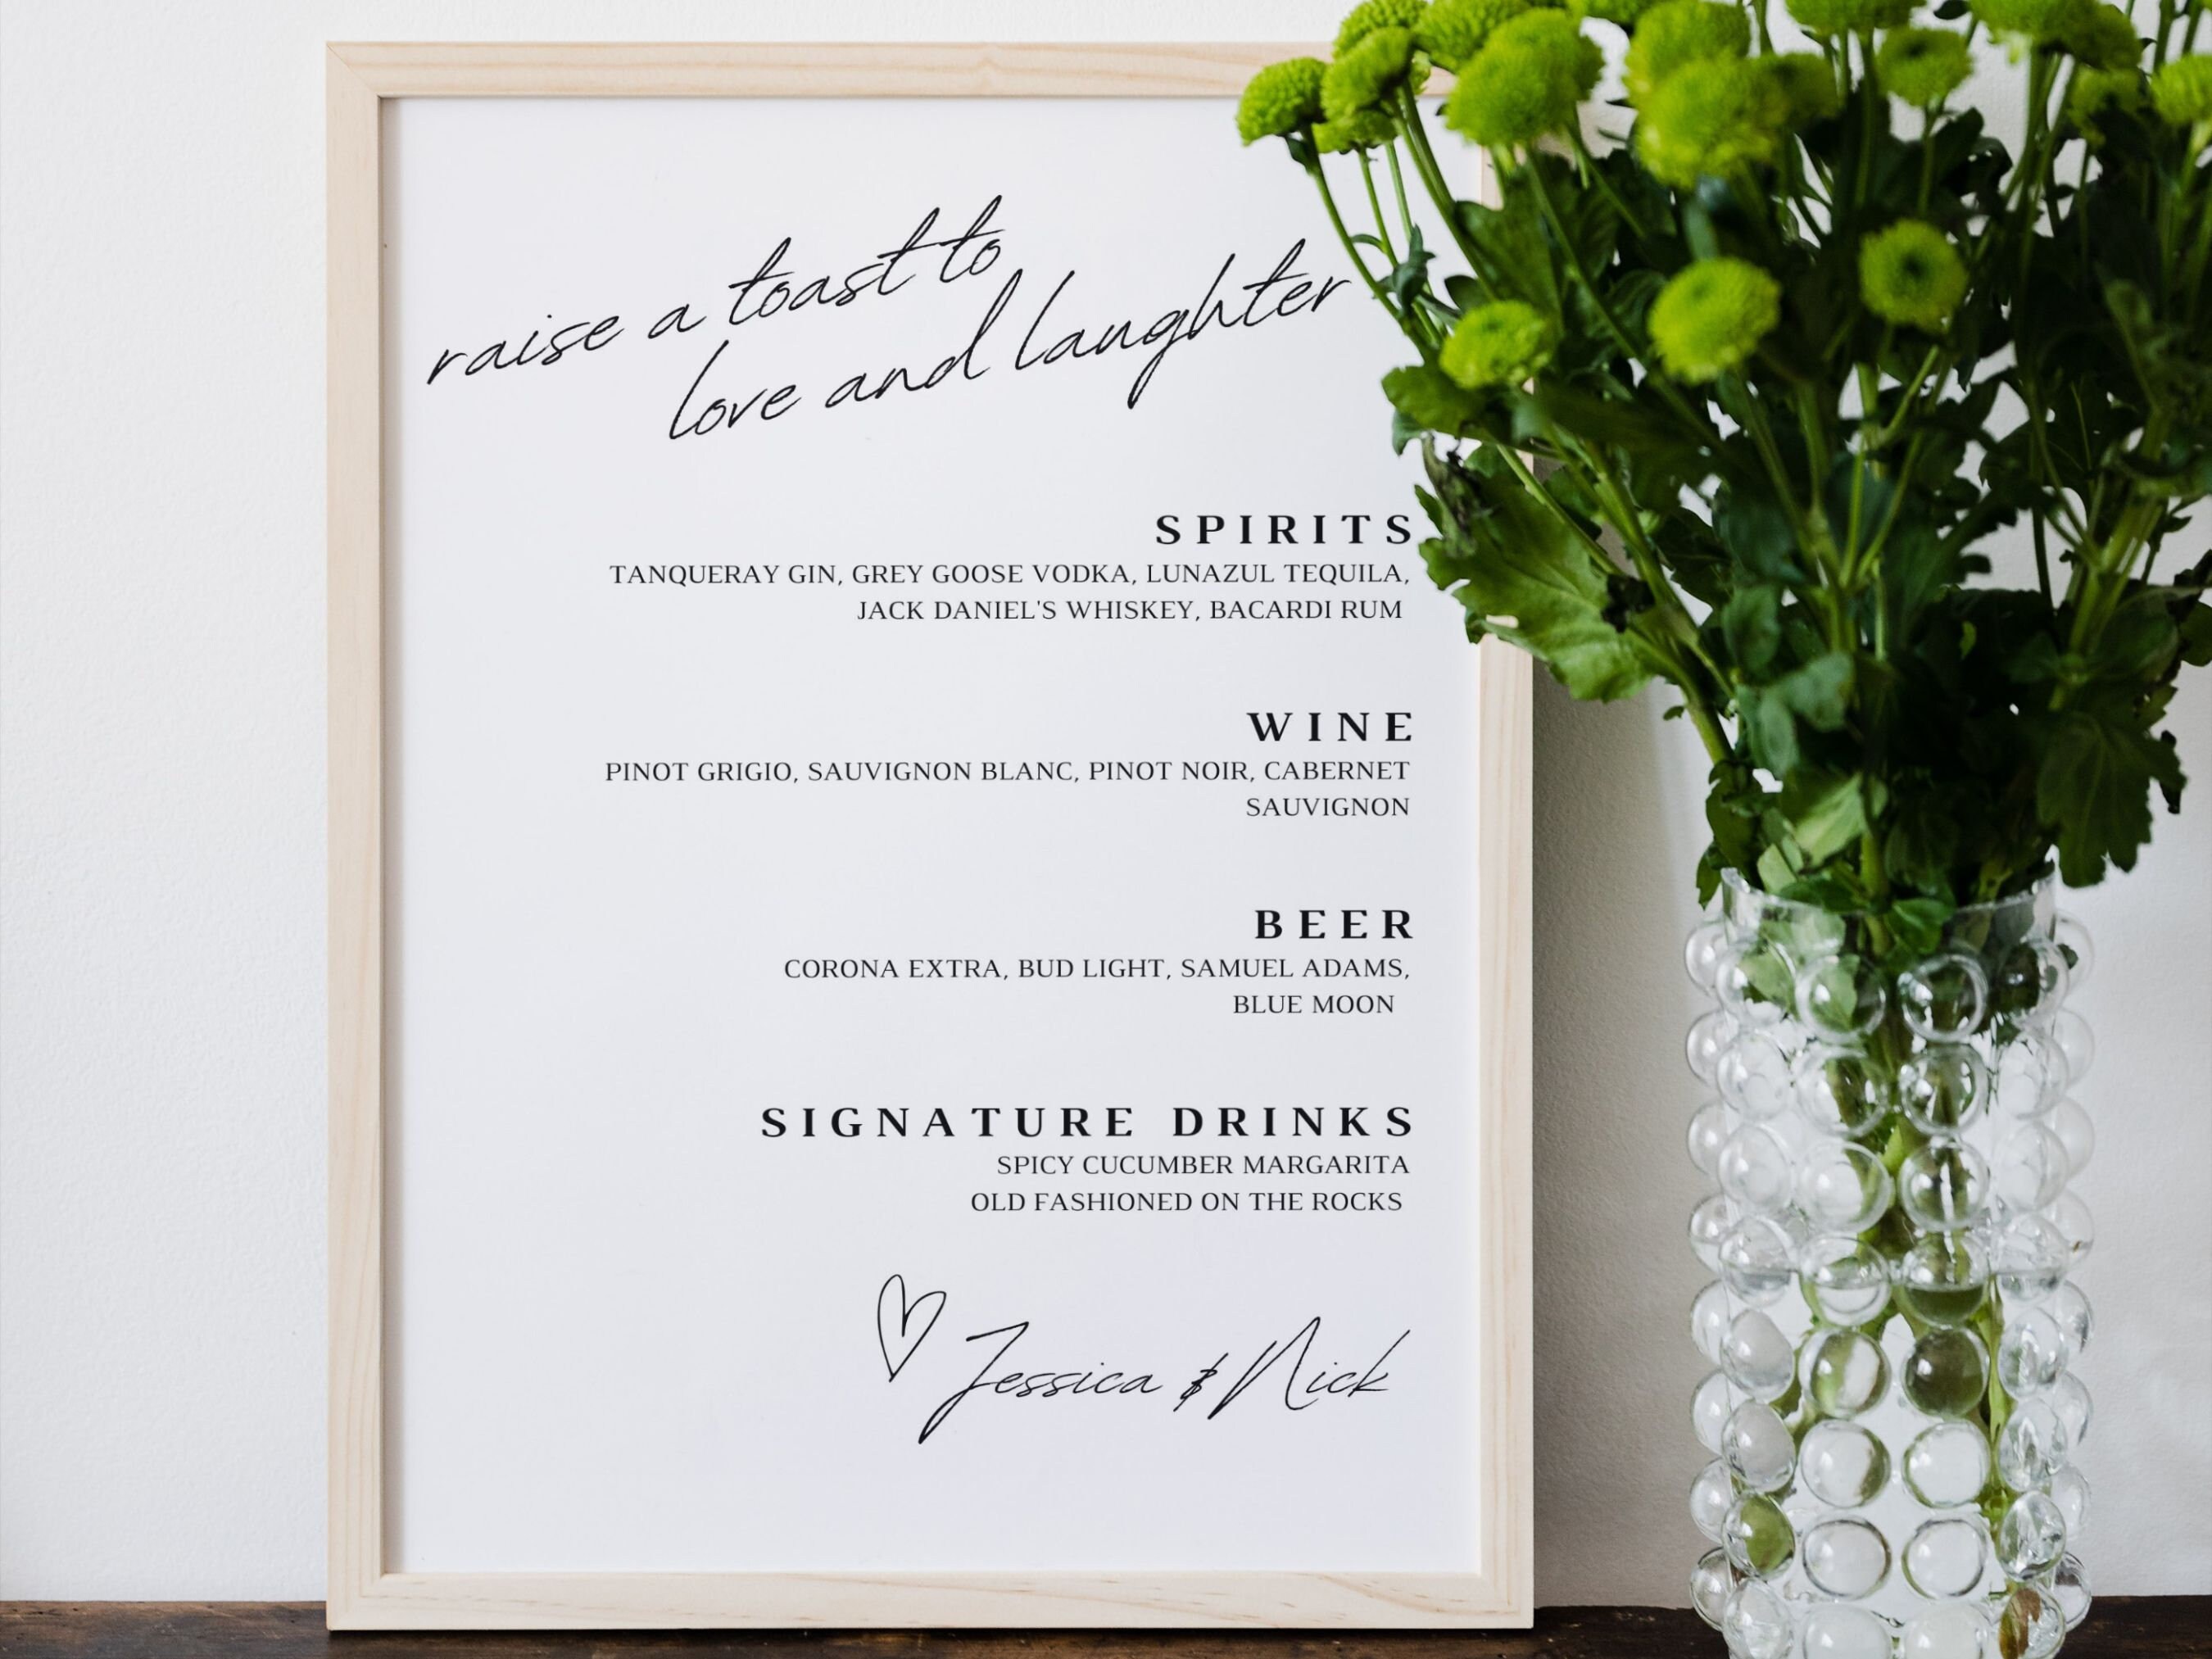 raise a toast to
love and laughter
SPIRITS
TANQUERAY GIN, GREY GOOSE VODKA, LUNAZUL TEQUILA,
JACK DANIEL'S WHISKEY, BACARDI RUM
WINE
PINOT GRIGIO, SAUVIGNON BLANC, PINOT NOIR, CABERNET
SAUVIGNON
BEER
CORONA EXTRA, BUD LIGHT, SAMUEL ADAMS,
BLUE MOON
SIGNATURE DRINKS
SPICY CUCUMBER MARGARITA
OLD FASHIONED ON THE ROCKS
Jessica & Nick